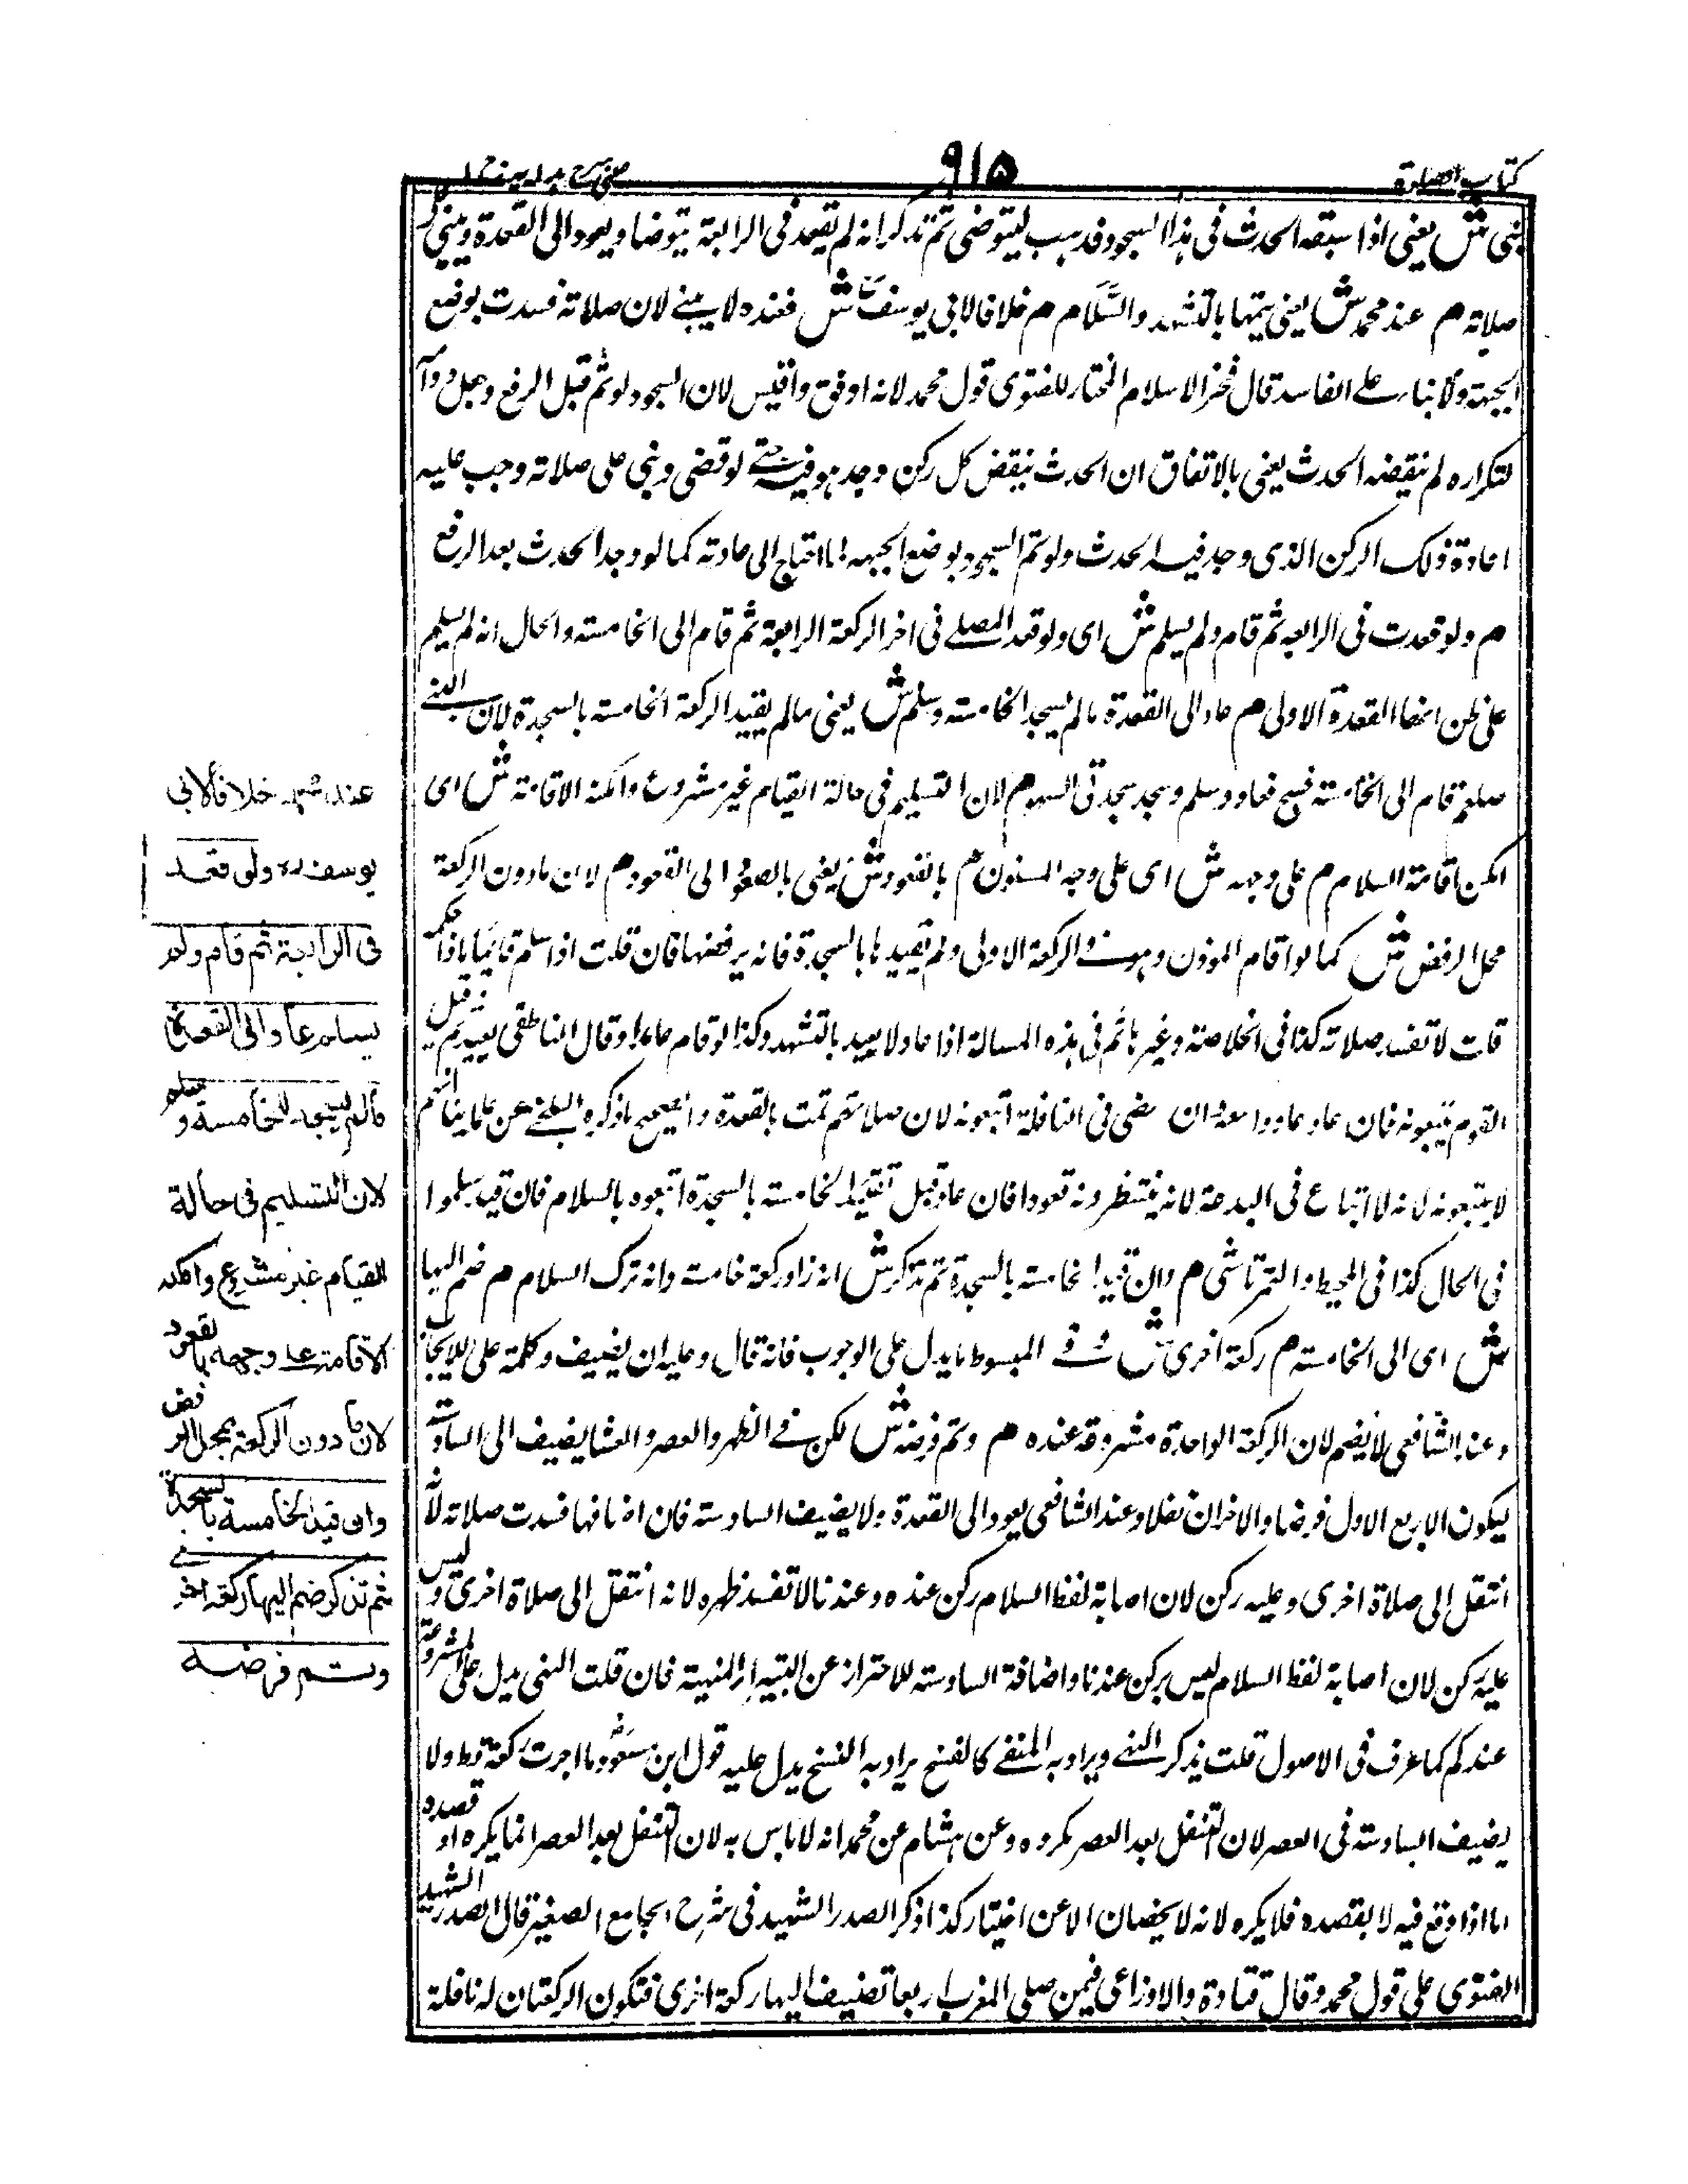 كتاب الصلوة
٩١٥
بنى ش يعني اذا سبقه الحدث في هذا السجود فذهب ليتوضى ثم تذكر انه لم يقعد في الرابعة يتوضا ويعود الى القعدة ويبني
صلاته م عند محمد ش يعني يتمها بالتشهد والسلام م خلافا لابي يوسف ش فعنده لا يبني لان صلاته فسدت بوضع
الجبهة ولا بناء على الفاسد قال فخر الاسلام المختار للفتوى قول محمد لانه اوفق واقيس لان السجود لو تم قبل الرفع وجعل دوامه
لتكراره لم ينقضه الحدث يعني بالاتفاق ان الحدث ينقض كل ركن وجد هو فيه حتى لو قضى وبنى على صلاته وجب عليه
اعادة ذلك الركن الذي وجد فيه الحدث ولو تم السجود بوضع الجبهة لما احتاج الى عادته كما لو وجد الحدث بعد الرفع
م ولو قعدت في الرابعه ثم قام ولم يسلم ش اى ولو قعد المصلے في اخر الركعة الرابعة ثم قام الى الخامسته والحال انه لم يسلم
على ظن انها القعدة الاولى م عاد الى القعدة ما لم يسجد الخامسته وسلم ش يعني مالم يقيد الركعة الخامسته بالسجدة لان النبے
صلعم قام الى الخامسته فسبح فعاد وسلم وسجد سجدتي السهو م لان التسليم في حالة القيام غير مشروع وامكنه الاقامة ش اى
امكن اقامة السلام م على وجهه ش اى على وجه المسنون م بالقعود ش يعني بالعود الى القعود م لان مادون الركعة
محل الرفض ش كما لو اقام الموذن وهو في الركعة الاولى ولم يقيدها بالسجدة فانه يرفضها فان قلت اذا سلم قايما ياذا حكمه
قلت لا تفسد صلاته كذا في الخلاصته وغيرها ثم في هذه المسالة اذا عاد لا يعيد بالتشهد وكذا لو قام عامدا وقال الناطقي يعيد ثم قيل
القوم يتبعونه فان عاد عادوا معه وان مضى في النافلة اتبعونه لان صلاتهم تمت بالقعدة والصحيح ماذكره البلخے عن علماينا انهم
لا يتبعونه لانه لا اتباع في البدعة لانه ينتظرونه قعودا فان عاد قبل تقييد الخامسته بالسجدة اتبعوه بالسلام فان قيد سلموا
في الحال كذا في المحيط والتمرتاشي م وان قيد الخامسته بالسجدة ثم تذكر ش انه زاد ركعة خامسته وانه ترك السلام م ضم اليها
ش اى الى الخامسته م ركعة اخرى ش وفي المبسوط ما يدل على الوجوب فانه قال وعليه ان يضيف وكلمة على للايجاب
وعند الشافعي لا يضم لان الركعة الواحدة مشروعة عنده م وتم فرضه ش لكن في الظهر والعصر والعشا يضيف الى السادسته
ليكون الاربع الاول فرضا والاخران نفلا وعند الشافعي يعود الى القعدة ولا يضيف السادسته فان اضافها فسدت صلاته لانه
انتقل الى صلاة اخرى وعليه ركن لان اصابة لفظ السلام ركن عنده وعندنا لا تفسد ظهره لانه انتقل الى صلاة اخرى وليس
عليه ركن لان اصابة لفظ السلام ليس بركن عندنا واضافة السادسته للاحتراز عن البتيراء المنهية فان قلت النهي يدل على المشروعية
عندكم كما عرف في الاصول قلت يذكر النهے ويراد به المنفے كالفسخ يراد به الفسخ يدل عليه قول ابن مسعود ما اجزت ركعة قط ولا
يضيف السادسته في العصر لان التنفل بعد العصر مكروه وعن هشام عن محمد انه لا باس به لان التنفل بعد العصر انما يكره اذا قصده
اما اذا وقع فيه لا بقصده فلا يكره لانه لا يحضيان الا عن اختيار كذا ذكر الصدر الشهيد في شرح الجامع الصغير قال الصدر الشهيد
الفتوى على قول محمد وقال قتادة والاوزاعي فيمن صلى المغرب اربعا تضيف اليها ركعة اخرى فتكون الركعتان له نافلة
عند محمد خلافا لابي
يوسف رح ولو قعد
في الرابعة ثم قام ولم
يسلم عاد الى القعدة
مالم يسجد للخامسة وسلم
لان التسليم في حالة
القيام غير مشروع وامكنه
الاقامة على وجهه بالقعود
لان مادون الركعة بمحل الرفض
وان قيد الخامسة بالسجدة
ثم تذكر ضم اليها ركعة اخرى
وتم فرضه